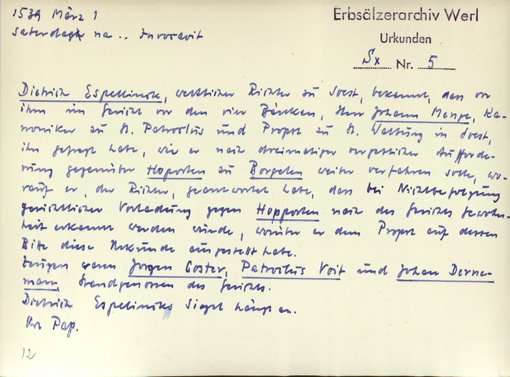 1539 März 1
Saterdagh na .. Invocavit
Erbsälzerarchiv Werl
Urkunden
Sx Nr. 5
Dietrich Espelinck, weltlicher Richter zu Soest, bekennt, dass vor
ihm im Gericht vor den vier Bänken, Herr Johann Menge, Ka-
noniker zu St. Patroclus und Propst zu St. Walburg in Soest,
ihn gefragt habe, wie er nach dreimaliger vergeblicher Aufforde-
rung gegenüber Hoporten zu Borgelen weiter verfahren solle, wo-
rauf er, der Richter, geantwortet habe, dass bei Nichtbefolgung
gerichtlicher Vorladung gegen Hopporten nach des Gerichts Gewohn-
heit erkannt werden würde, worüber er dem Propst auf dessen
Bitte diese Urkunde ausgestellt habe.
Zeugen waren Jorgen Coster, Patroclus Voit und Johan Derne-
mann, Standgenossen des Gerichts.
Dietrich Espelincks Siegel hängt an.
Or. Pap.
12